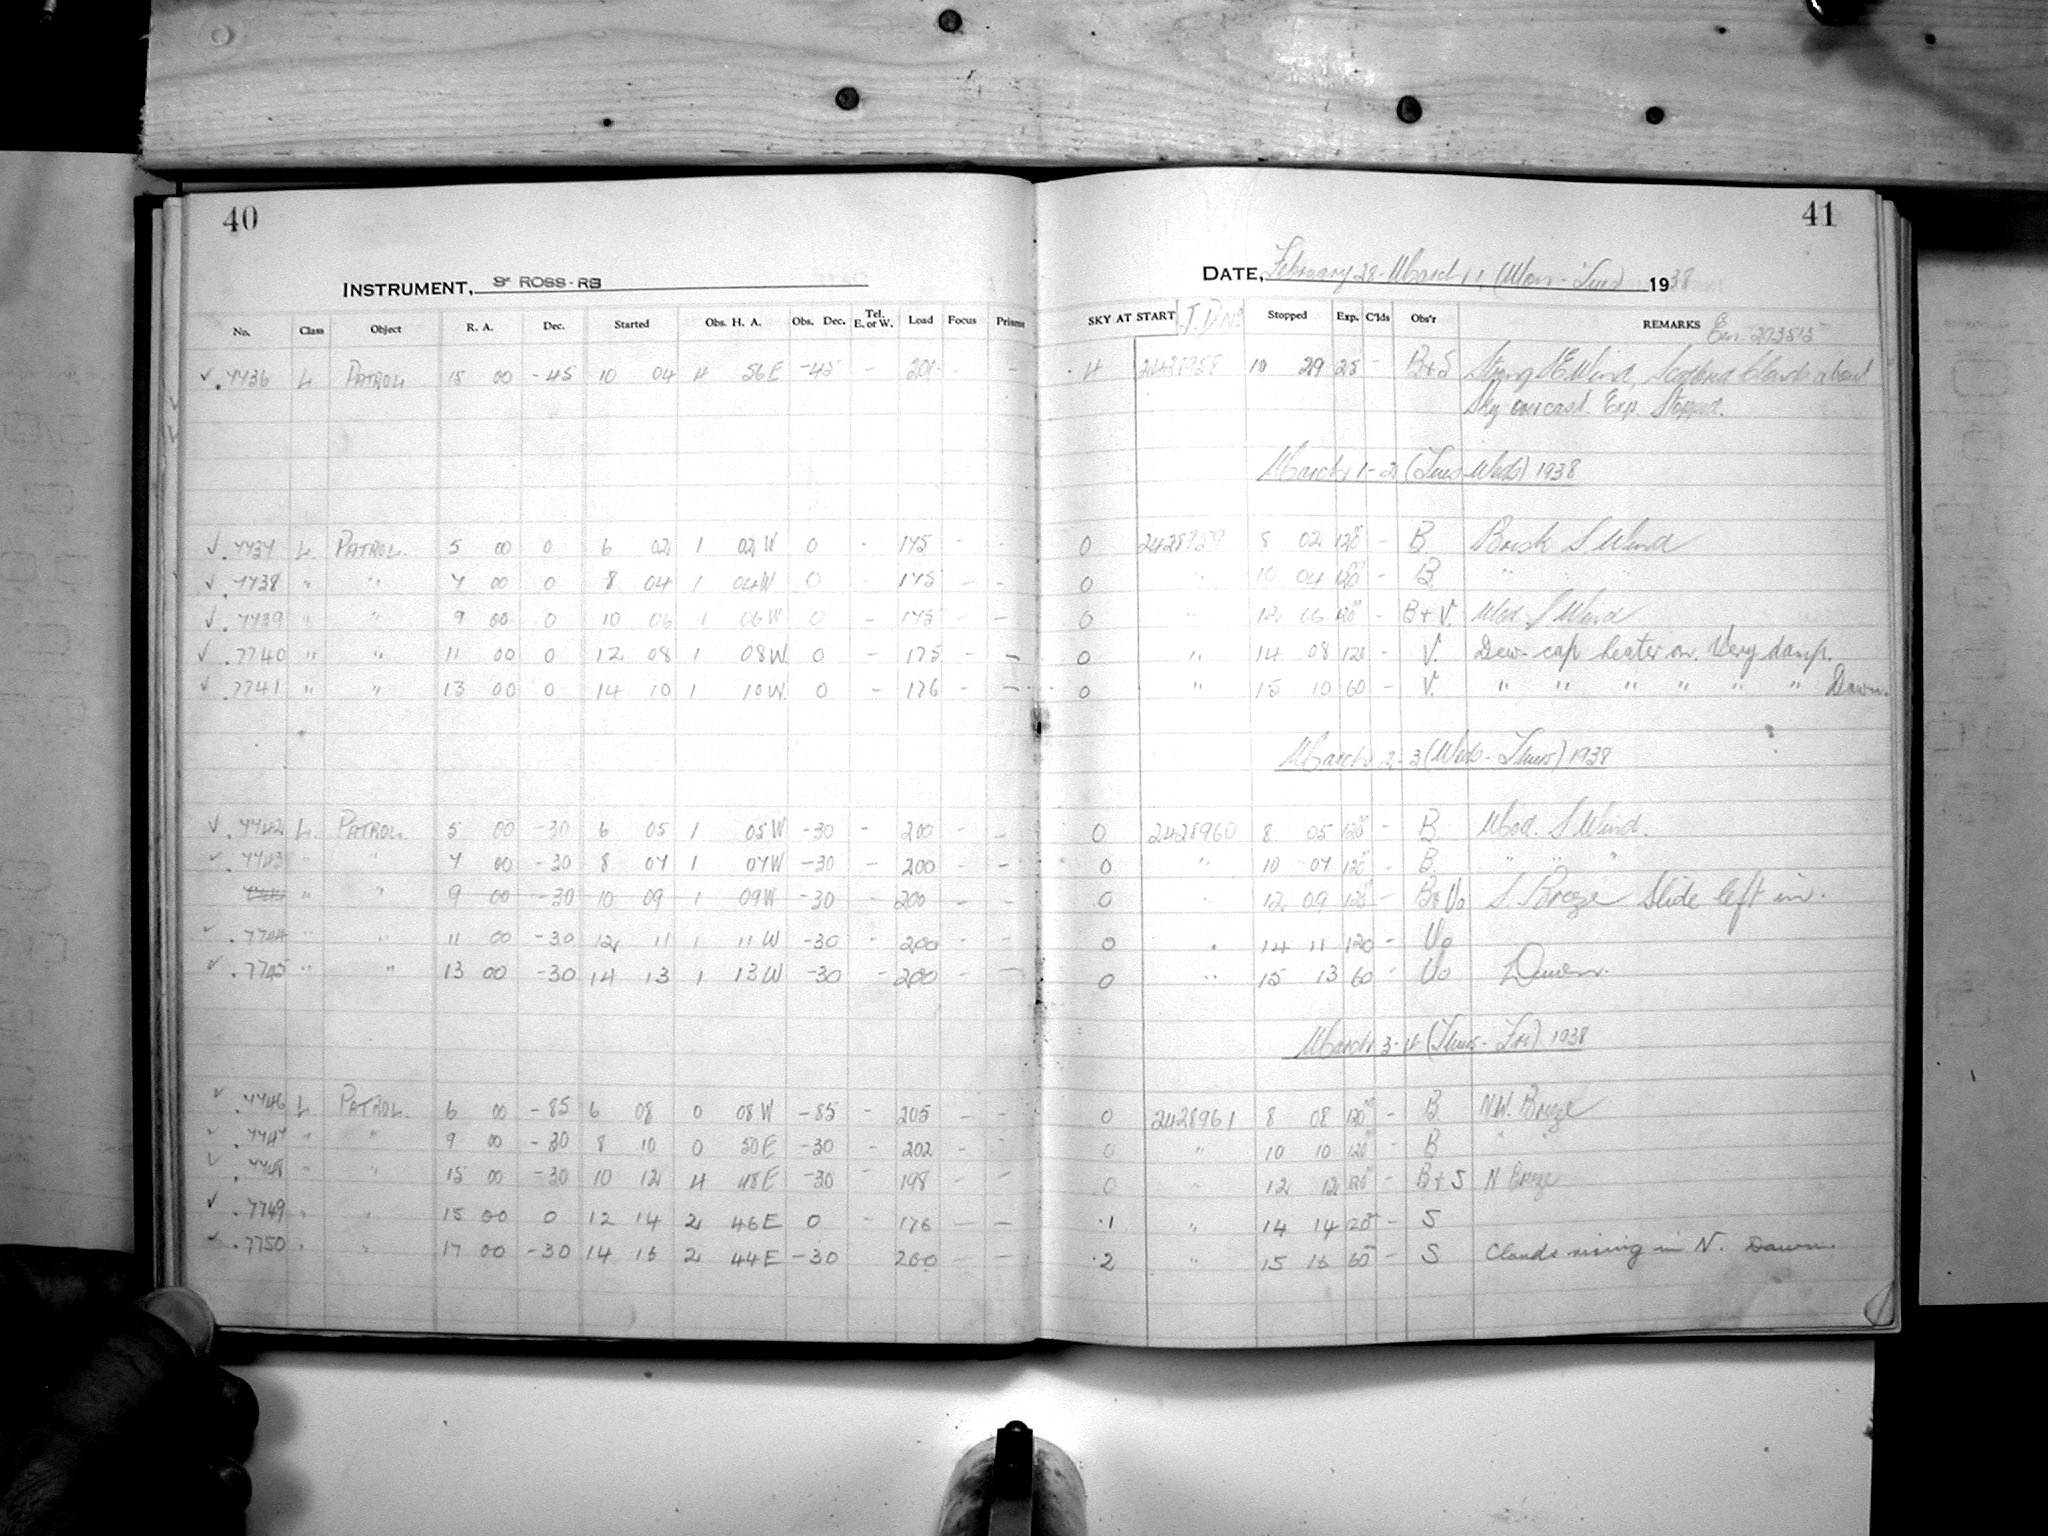 40
41
INSTRUMENT, 8" ROSS-RB
DATE, February 28 - March 1, (Mon - Tues) 1938
No. Class Object R. A. Dec. Started Obs. H. A. Obs. Dec. Tel. E. or W. Load Focus Prisms SKY AT START J.D. No. Stopped Exp. C'lds Obs'r REMARKS Em. 293515
✓ .7736 L PATROL 15 00 -45 10 04 4 56E -45 - 201 - 4 2428958 10 29 25 - B+S Strong SE Wind, Scattered Clouds about
Sky overcast. Exp. Stopped.
March 1-2 (Tues-Weds) 1938
✓ .7737 L PATROL 5 00 0 6 02 1 02W 0 - 175 - - 0 2428959 8 02 120 - B Brisk S Wind
✓ .7738 " " 7 00 0 8 04 1 04W 0 - 175 - - 0 " 10 04 120 - B "
✓ .7739 " " 9 00 0 10 06 1 06W 0 - 175 - - 0 " 12 06 120 - B+V. Mod. S Wind
✓ .7740 " " 11 00 0 12 08 1 08W. 0 - 175 - - 0 " 14 08 120 - V. Dew-cap heater on. Very damp.
✓ .7741 " " 13 00 0 14 10 1 10W. 0 - 176 - - 0 " 15 10 60 - V. " " " " " " Dawn.
March 2-3 (Weds-Thurs) 1938
✓ .7742 L PATROL 5 00 -30 6 05 1 05W -30 - 200 - - 0 2428960 8 05 120 - B Mod. S Wind.
✓ .7743 " " 7 00 -30 8 07 1 07W -30 - 200 - - 0 " 10 07 120 - B " " "
" " 9 00 -30 10 09 1 09W -30 - 200 - - 0 " 12 09 120 - B+Vo S Breeze Slide left in.
✓ .7744 " " 11 00 -30 12 11 1 11W -30 - 200 - - 0 " 14 11 120 - Vo
✓ .7745 " " 13 00 -30 14 13 1 13W -30 - 200 - - 0 " 15 13 60 - Vo Dawn.
March 3-4 (Thurs-Fri) 1938
✓ .7746 L PATROL 6 00 -85 6 08 0 08W -85 - 205 - - 0 2428961 8 08 120 - B N.W. Breeze
✓ .7747 " " 9 00 -30 8 10 0 50E -30 - 202 - - 0 " 10 10 120 - B " "
✓ .7748 " " 15 00 -30 10 12 4 48E -30 - 198 - - 0 " 12 12 120 - B+S N Breeze
✓ .7749 " " 15 00 0 12 14 2 46E 0 - 176 - - .1 " 14 14 120 - S
✓ .7750 " " 17 00 -30 14 16 2 44E -30 200 - - .2 " 15 16 60 - S Clouds rising in N. Dawn.